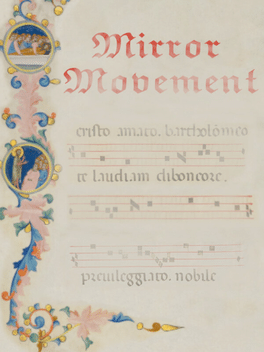 Mirror
Movement
cristo amato. bartholomeo
te laudiam chboncore.
preuileggiato. nobile